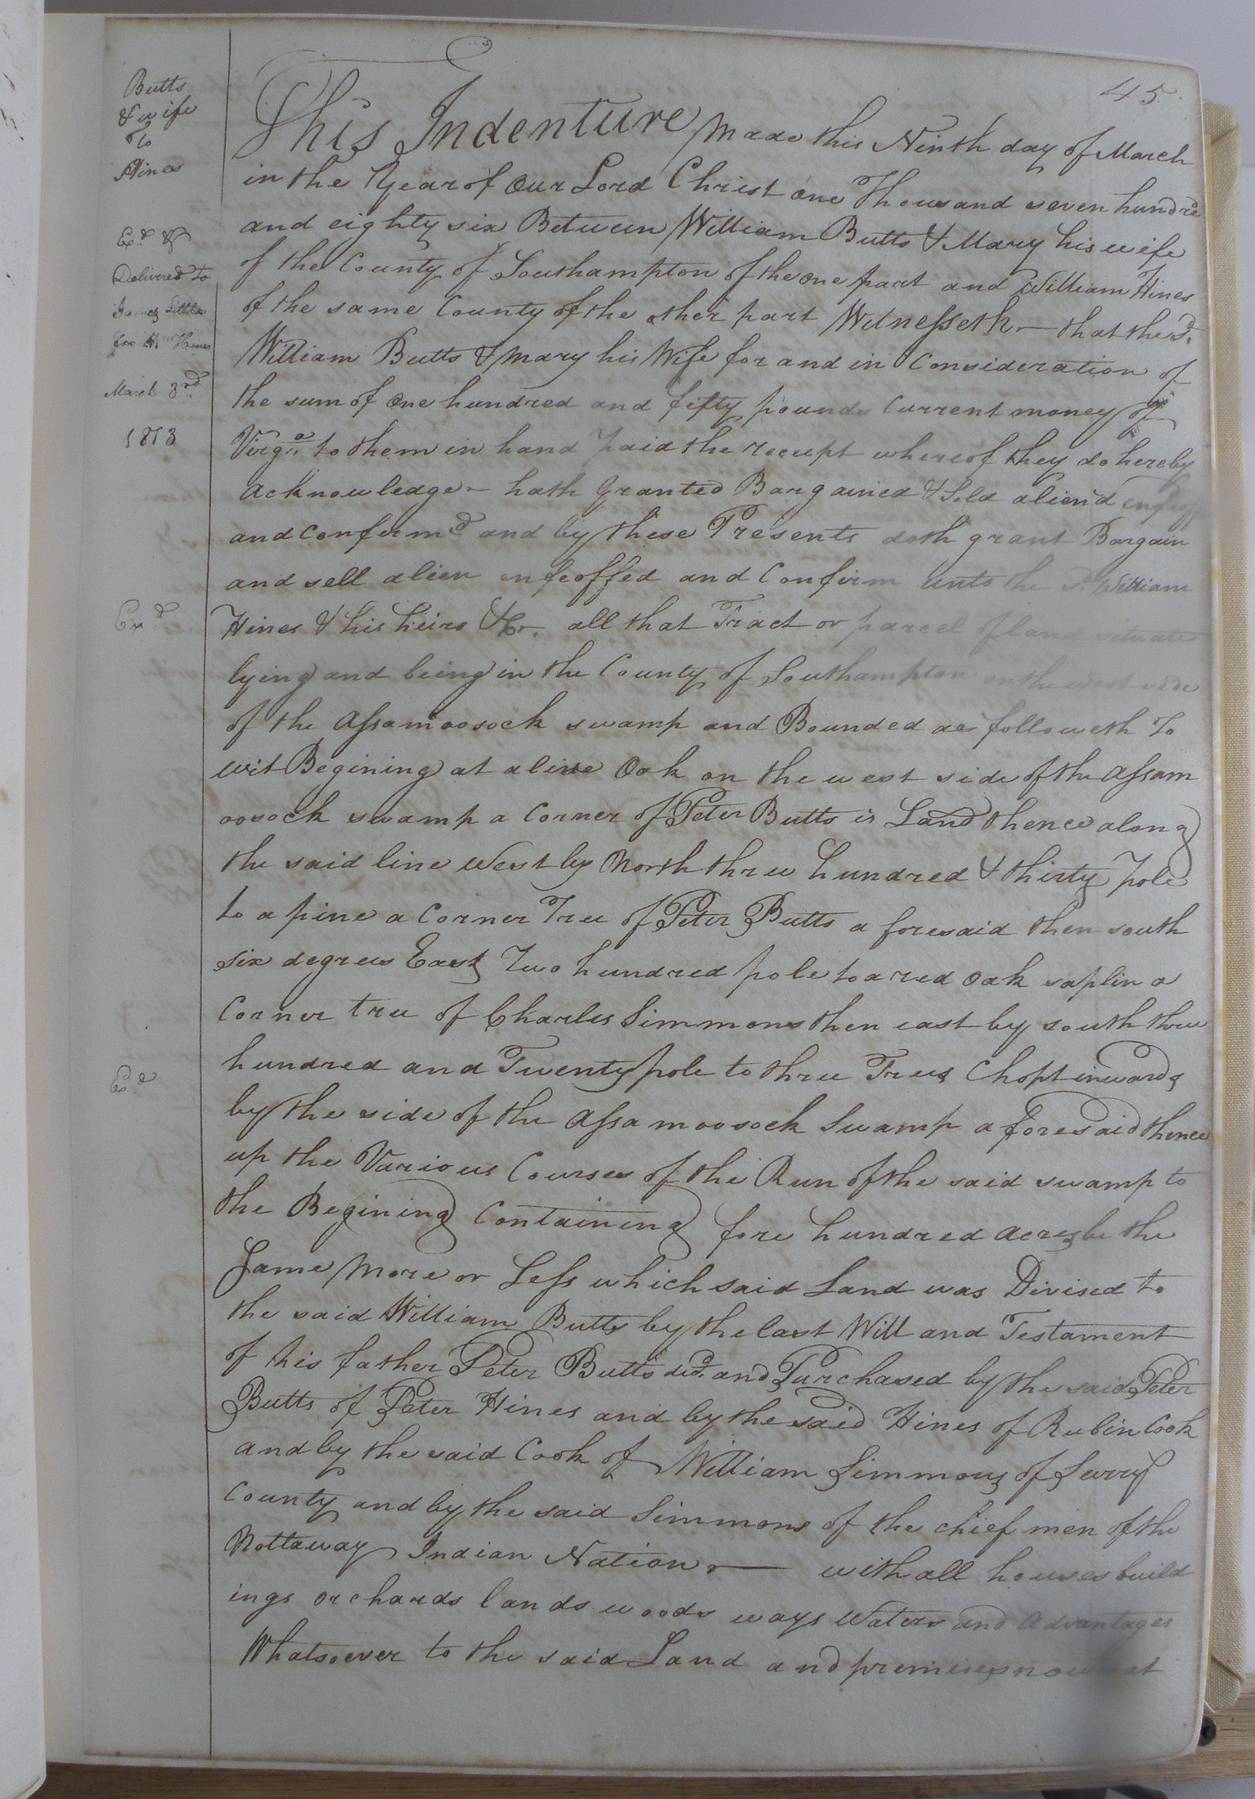 45
Butts
& wife
To
Hines
Exd. &
Delivered to
James
for Mr. Hines
March 3rd
1813
Exd.
Exd.
This Indenture Made this Ninth day of March
in the Year of Our Lord Christ one Thousand seven hundre
and eighty six Between William Butts & Mary his wife
of the County of Southampton of the one part and William Hines
of the same County of the other part Witnesseth — that the sd.
William Butts & Mary his Wife for and in Consideration of
the sum of One hundred and fifty pounds Current money of
Virga. to them in hand paid the receipt whereof they do hereby
Acknowledge — hath Granted Bargained & Sold aliend
and Confirmd. and by these Presents doth grant Bargain
and sell alien enfeoffed and Confirm unto the sd. William
Hines & his heirs &c. all that Tract or parcel of land situate
lying and being in the County of Southampton on the west side
of the Assamoosock swamp and Bounded as followeth To
wit Begining at a live Oak on the west side of the Assam
oosock swamp a Corner of Peter Butts is Land thence along
the said line West by North three hundred & thirty pole
to a pine a Corner Tree of Peter Butts a foresaid then south
six degrees East Two hundred pole to a red Oak saplin a
Corner tree of Charles Simmons then east by south three
hundred and Twenty pole to three Trees Chopt inwards
by the side of the Assamoosock Swamp aforesaid thence
up the Various Courses of the Run of the said swamp to
the Begining Containing fore hundred acres be the
Same More or Less which said Land was Divised to
the said William Butts by the last Will and Testament
of his father Peter Butts decd. and Purchased by the said Peter
Butts of Peter Hines and by the said Hines of Rubin Cook
and by the said Cook of William Simmons of Surry
County and by the said Simmons of the chief men of the
Nottaway Indian Nation — with all houses build
ings orchards lands woods ways Waters and Advantages
Whatsoever to the said Land and premises now at